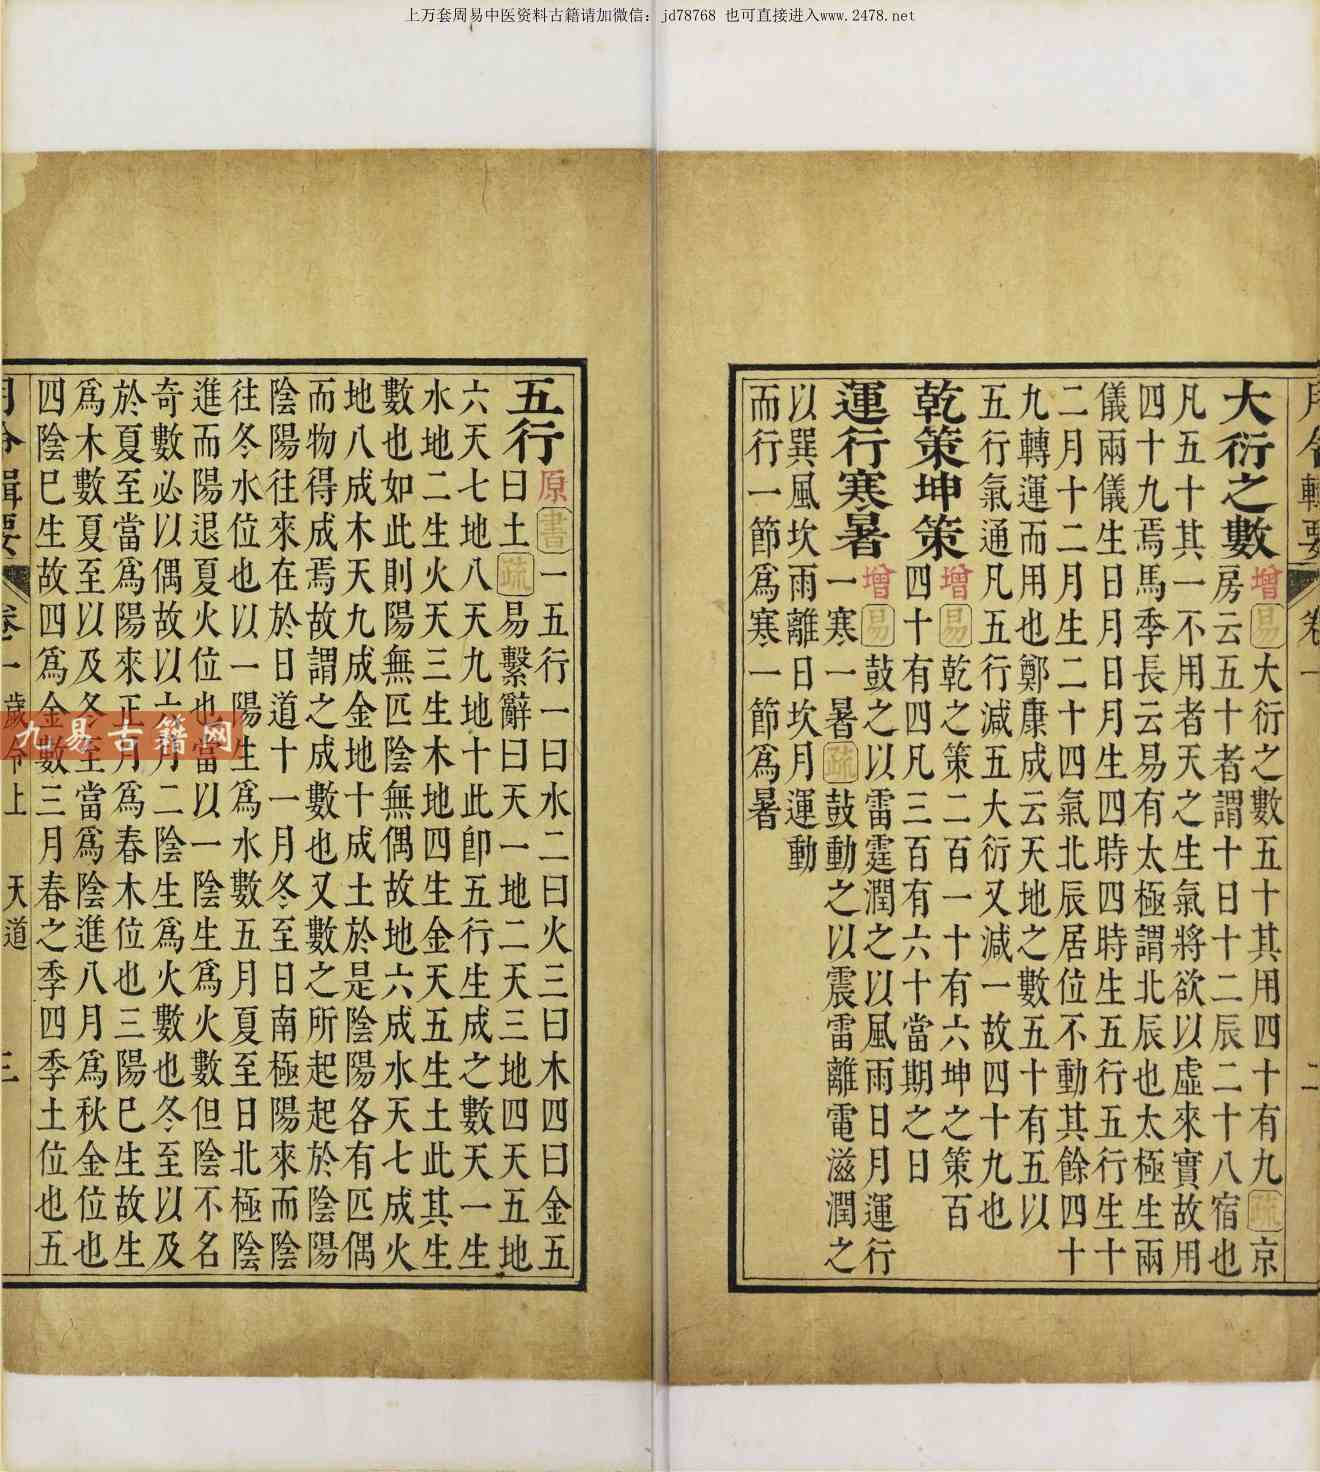 上万套周易中医资料古籍请加微信：jd78768 也可直接进入www.2478.net
月令輯要 卷一 二
大衍之數 增 易 大衍之數五十其用四十有九 疏 京
房云五十者謂十日十二辰二十八宿也
凡五十其一不用者天之生氣將欲以虛來實故用
四十九焉馬季長云易有太極謂北辰也太極生兩
儀兩儀生日月日月生四時四時生五行五行生十
二月十二月生二十四氣北辰居位不動其餘四十
九轉運而用也鄭康成云天地之數五十有五以
五行氣通凡五行減五大衍又減一故四十九也
乾策坤策 增 易 乾之策二百一十有六坤之策百
四十有四凡三百有六十當期之日
運行寒暑 增 易 鼓之以雷霆潤之以風雨日月運行
一寒一暑 疏 鼓動之以震雷離電滋潤之
以巽風坎雨離日坎月運動
而行一節爲寒一節爲暑
五行 原 書 一五行一曰水二曰火三曰木四曰金五
曰土 疏 易繫辭曰天一地二天三地四天五地
六天七地八天九地十此卽五行生成之數天一生
水地二生火天三生木地四生金天五生土此其生
數也如此則陽無匹陰無偶故地六成水天七成火
地八成木天九成金地十成土於是陰陽各有匹偶
而物得成焉故謂之成數也又數之所起起於陰陽
陰陽往來在於日道十一月冬至日南極陽來而陰
往冬水位也以一陽生爲水數五月夏至日北極陰
進而陽退夏火位也當以一陰生爲火數但陰不名
奇數必以偶故以六月二陰生爲火數也冬至以及
於夏至當爲陽來正月爲春木位也三陽巳生故生
爲木數夏至以及冬至當爲陰進八月爲秋金位也
四陰巳生故四爲金數三月春之季四季土位也五
月令輯要 卷一 歲令上 天道 三
九易古籍网